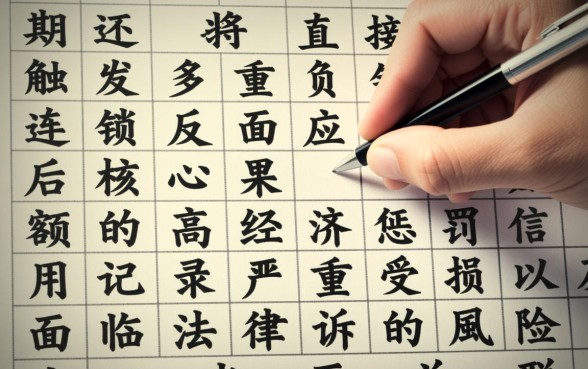 期还将直接
触发多重负
连锁反面应
后核心果
额的高经济惩罚信
用记录严重受损以
面临法律诉的風险